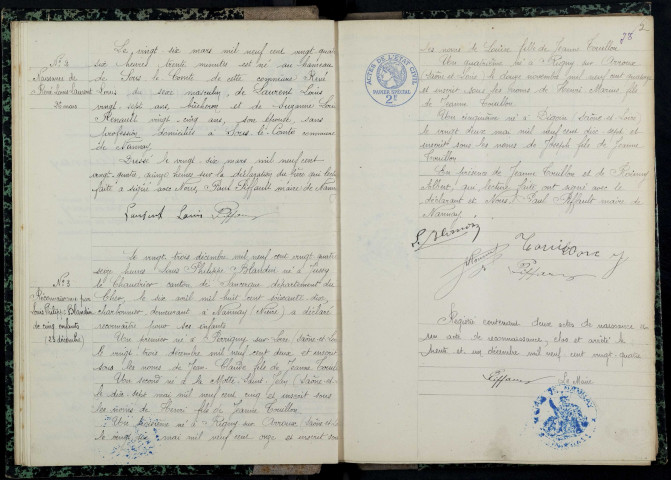 N° 2
Naissance de
René Louis Laurent
Le vingt-six mars mil neuf cent vingt quatre
six heures trente minutes est né au hameau
de Sous le Comte de cette commune René
Louis du sexe masculin, de Laurent Louis
vingt sept ans bûcheron et de Suzanne
Renault vingt cinq ans, son épouse, sans
profession domiciliés à Sous le Comte commune
de Nannay.
Dressé le vingt six mars mil neuf cent
vingt quatre heures sur la déclaration du père qui lecture
faite a signé avec Nous, Paul Piffault maire de Nannay
Laurent Louis Piffault
N° 3
Reconnaissance par
Louis Philippe Blandin
de cinq enfants
(23 décembre)
Le vingt trois décembre mil neuf cent vingt quatre
seize heures Louis Philippe Blandin né à Jussy
le Chaudrier canton de Sancergues département du
Cher, le six mai mil huit cent soixante dix,
charbonnier demeurant à Nannay (Nièvre) a déclaré
reconnaître pour ses enfants
Un premier né à Perrigny sur Loire (Saône et L
le vingt trois décembre mil neuf cent deux et inscrit
sous les noms de Jean Claude fils de Jeanne Touillon
Un second né à la Motte Saint Jean (Saône et
le dix sept mai mil neuf cent cinq et inscrit sous
les noms de Henri fils de Jeanne Touillon
Un troisième né à Rigny sur Arroux (Saône et
le vingt mai mil neuf cent onze et inscrit sous
2
28
ACTES DE L'ÉTAT CIVIL
PAPIER SPÉCIAL
2F
les noms de Louise fille de Jeanne Touillon
Un quatrième né à Rigny sur Arroux
(Saône et Loire) le douze novembre mil neuf cent
et inscrit sous les noms de Henri Marius fils
de Jeanne Touillon
Un cinquième né à Digoin Saône et Loire
le vingt deux mai mil neuf cent dix sept et
inscrit sous les noms de Joseph fils de Jeanne
Touillon
En présence de Jeanne Touillon et de
Albert, qui, lecture faite ont signé avec le
déclarant et Nous Paul Piffault maire de
Nannay
Piffault
Registre contenant deux actes de naissance
un acte de reconnaissance, clos et arrêté le
trente et un décembre mil neuf cent vingt quatre
Piffault Le Maire